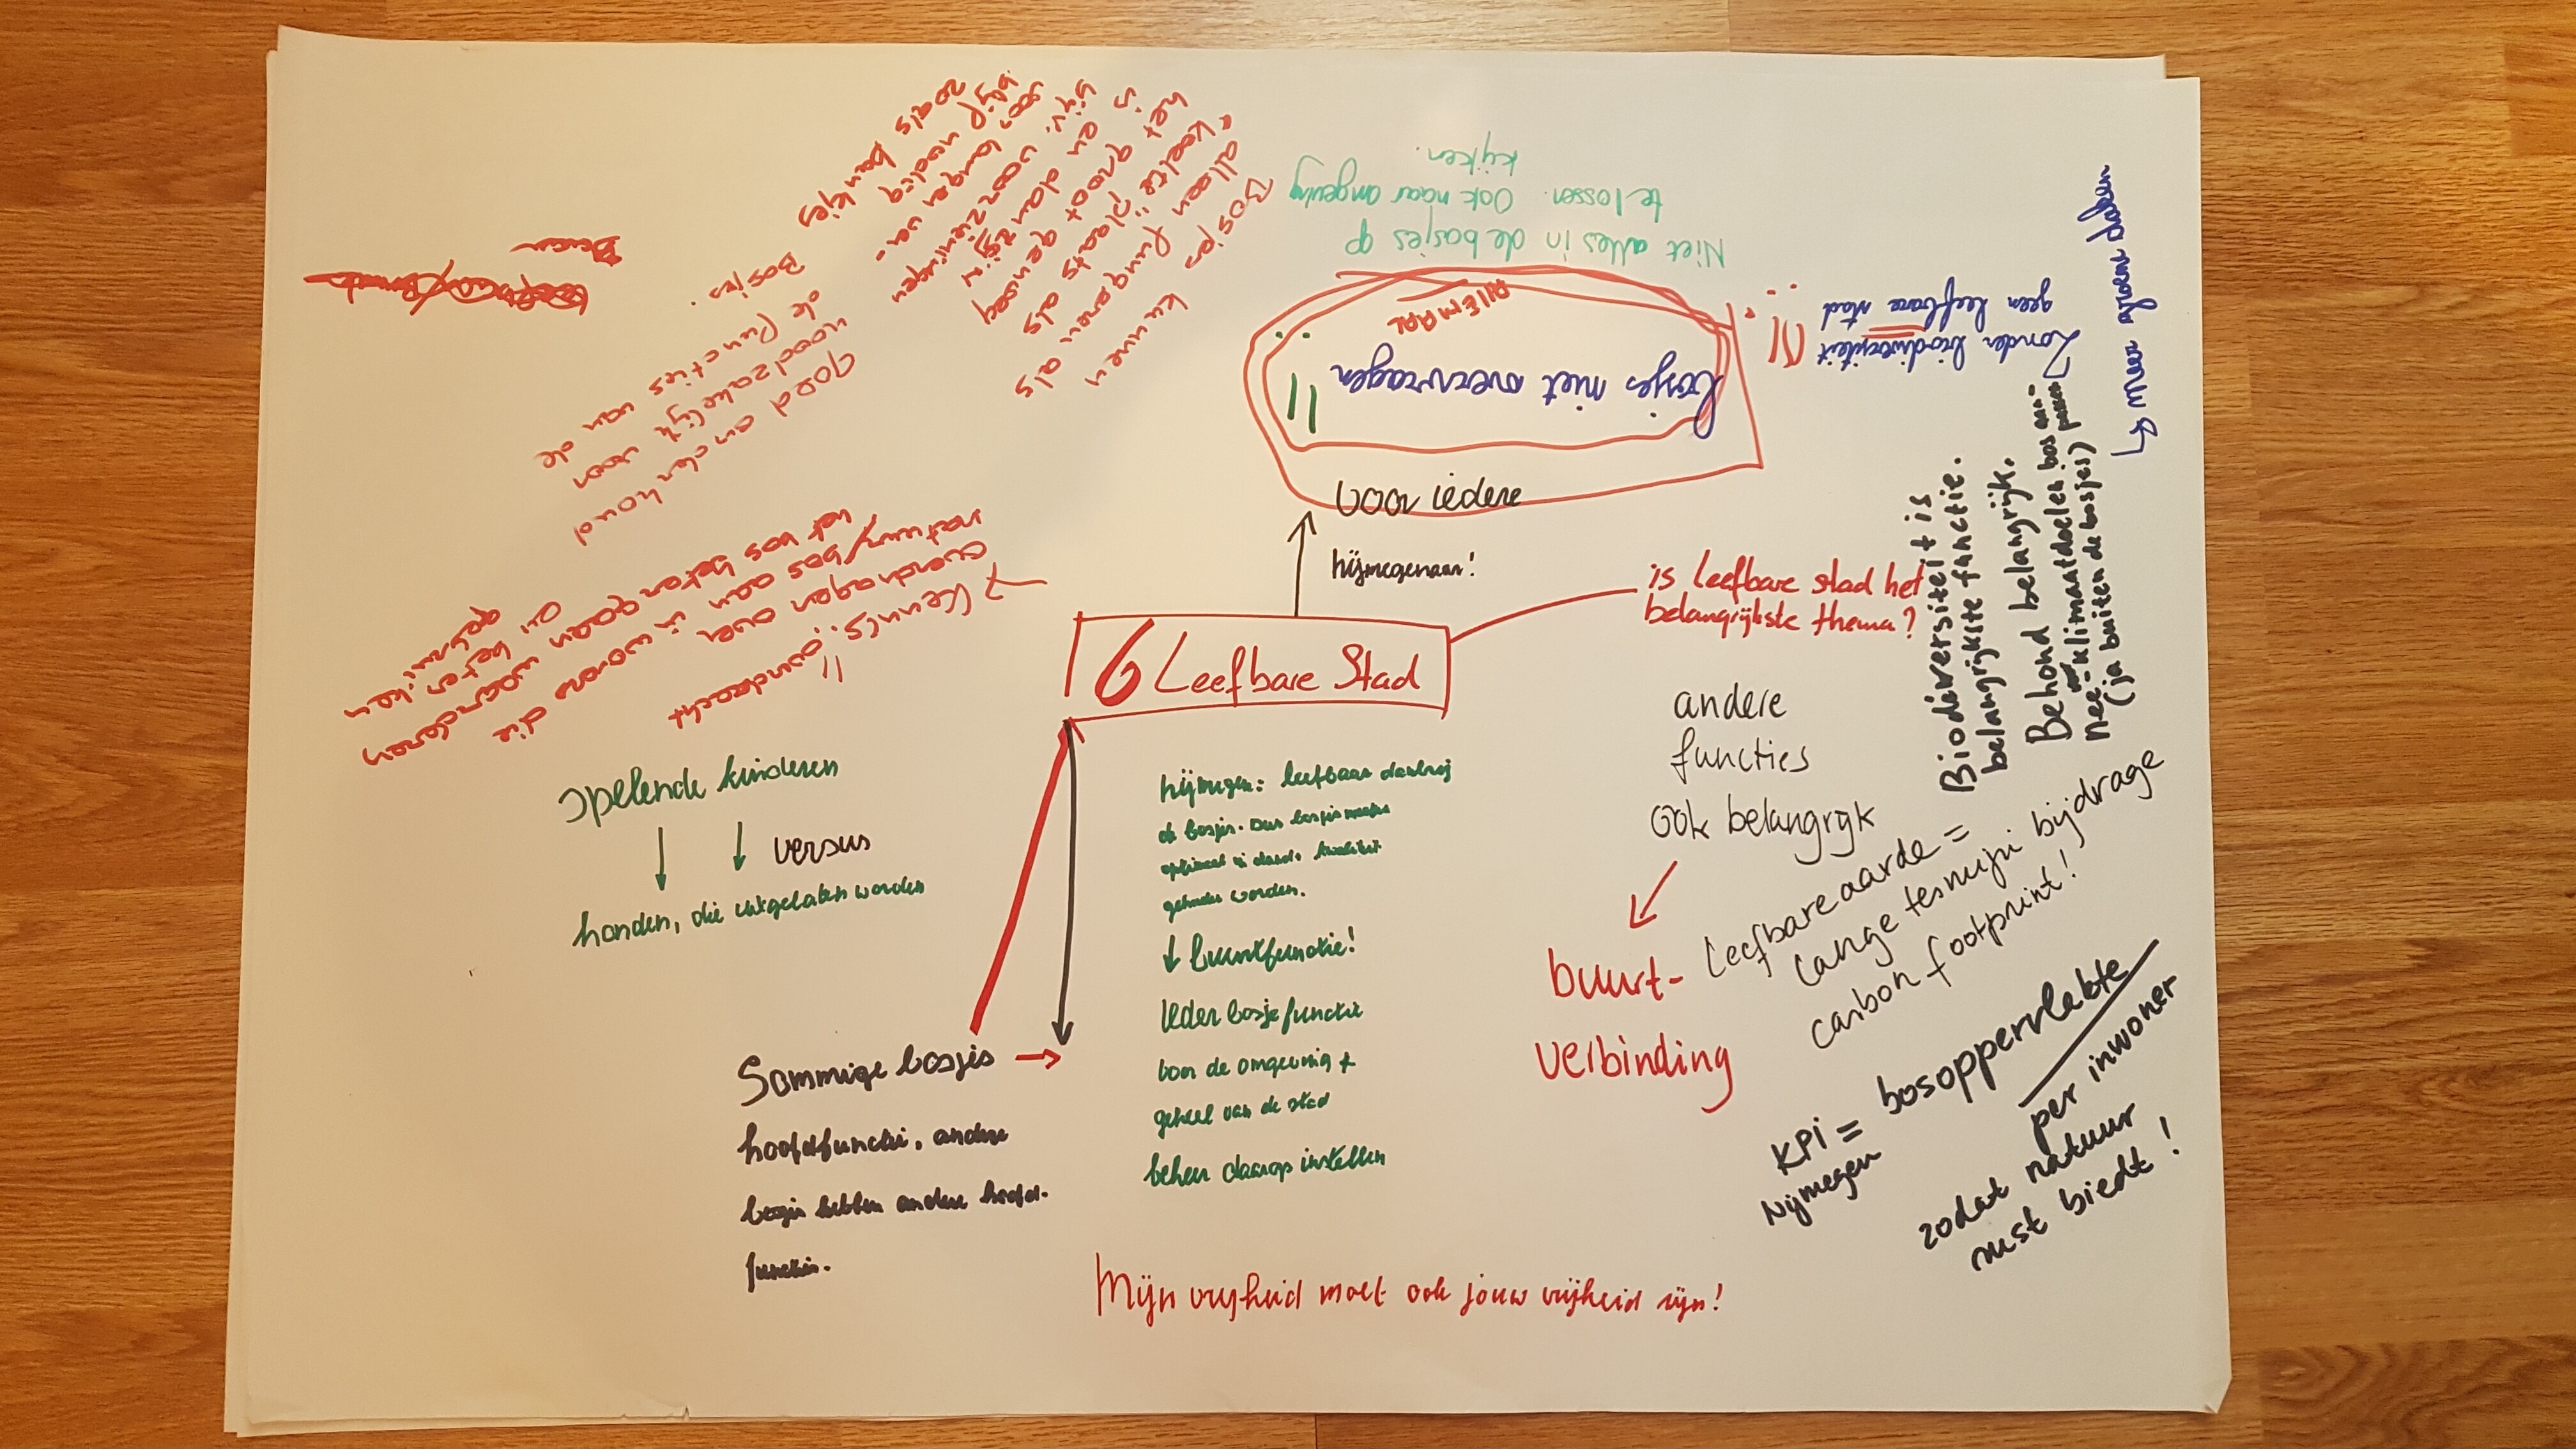 6 Leefbare Stad
voor iedere
Nijmegenaar!
bosjes niet overvragen
ALLEMAAL
!!
Niet alles in de bosjes op
te lossen. Ook naar omgeving
kijken.
!!!
Zonder biodiversiteit
geen leefbare stad
↳ meer groene daken
is Leefbare stad het
belangrijkste thema?
Biodiversiteit is
belangrijkste functie.
Behoud belangrijk.
klimaatdoelen bos aan-
passen
(ja buiten de bosjes)
andere
functies
ook belangrijk
buurt-
verbinding
Leefbare aarde =
lange termijn bijdrage
carbon footprint!
KPI = bosoppervlakte
Nijmegen
per inwoner
zodat natuur
rust biedt!
Nijmegen: leefbaar dankzij
de bosjes. Dus bosjes moeten
optimaal in kwaliteit
gehouden worden.
↓ buurtfunctie!
Ieder bosje functie
voor de omgeving +
geheel van de stad
beheer daarop instellen
Sommige bosjes →
hoofdfunctie, andere
bosjes hebben andere hoofd-
functies.
Mijn vrijheid moet ook jouw vrijheid zijn!
spelende kinderen
↓ ↓ versus
honden, die uitgelaten worden
!! aandacht
→ Kennis
overdragen over
natuur/bos aan
inwoners die
het bos gaan waarderen
beter en beter
gebruiken
goed onderhoud
noodzakelijk voor
de functies van de
Bosjes.
Bosjes kunnen
alleen fungeren als
"koelte" plaats als
het groot genoeg
is en dan zijn
bijv. voorzieningen
voor langer ver-
blijf nodig
zoals bankjes